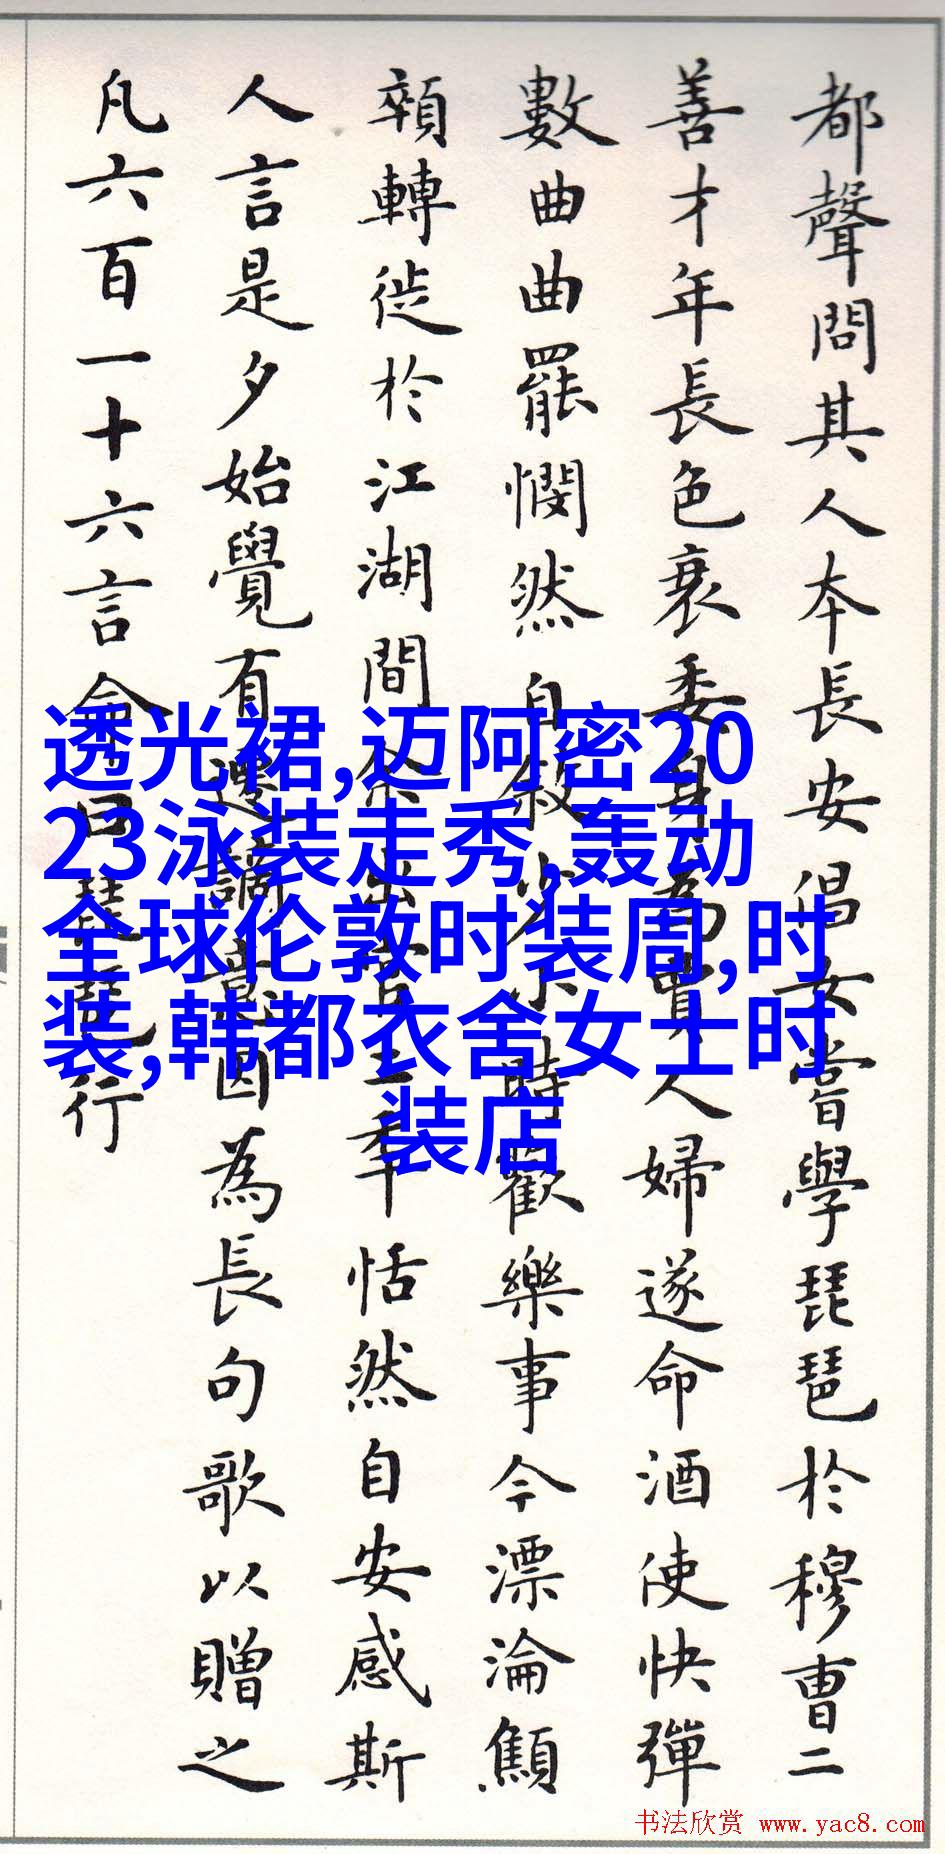 都聲問其人本長安倡女嘗學琵琶於穆曹二
善才年長色衰委身為賈人婦遂命酒使快彈
數曲曲罷憫然自敘少小時歡樂事今漂淪顦
顇轉徙於江湖間余出官二年恬然自安感斯
人言是夕始覺有遷謫意因為長句歌以贈之
凡六百一十六言命曰琵琶行
透光裙,迈阿密20
23泳装走秀,轰动
全球伦敦时装周,时
装,韩都衣舍女士时
装店
书法欣赏 www.yac8.com